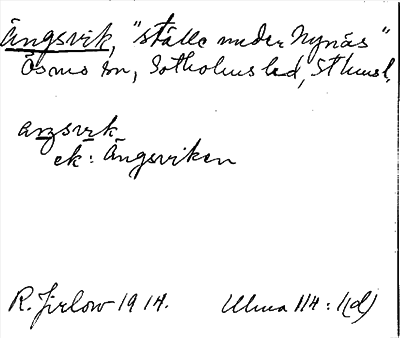 Ängsvik, "ställe under Nynäs"
Ösmo sn, Sotholms hd, Sthmsl.
aŋsvik
ek: Ängsviken
R. Jirlow 1914. Ulma 114:1(d)